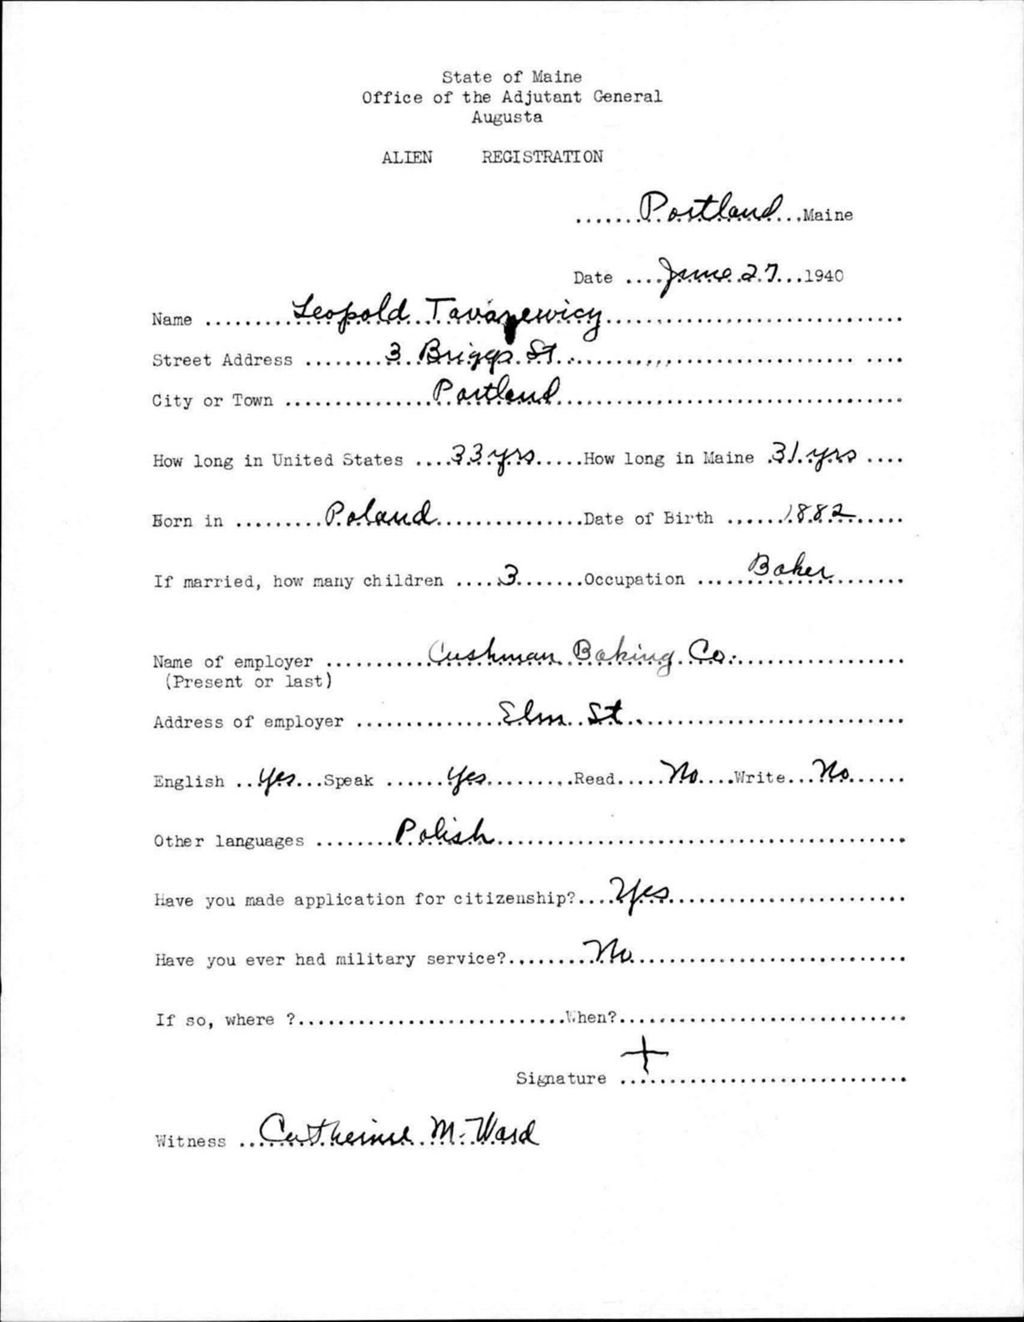 State of Maine
Office of the Adjutant General
Augusta
ALIEN REGISTRATION
.......Portland...,Maine
Date ....June 27...1940
Name .........Leopold
Street Address ........3 Briggs St.
City or Town ...............Portland
How long in United States ....33 yrs.....How long in Maine .31 yrs....
Born in .........Poland...............Date of Birth ......1882......
If married, how many children ....3.......Occupation ....Baker.......
Name of employer ..........Cushman Baking Co.
(Present or last)
Address of employer ...............Elm St.
English ..Yes...Speak ......Yes.........Read.....No....Write...No......
Other languages ........Polish
Have you made application for citizenship?....Yes
Have you ever had military service?.........No
If so, where ?...........................When?.............................
Signature ..+..........................
Witness ...Catherine M. Ward